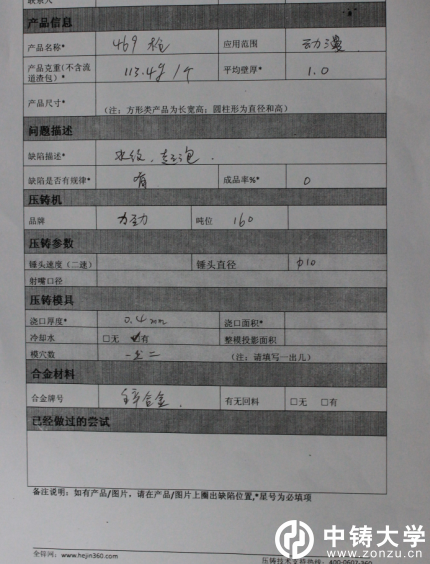 产品信息
产品名称* 469枪 应用范围 动漫
产品克重(不含流道渣包)* 113.4g/个 平均壁厚* 1.0
产品尺寸* (注：方形类产品为长宽高；圆柱形为直径和高)
问题描述
缺陷描述* 水纹、起泡.
缺陷是否有规律* 有 成品率%* 0
压铸机
品牌 力劲 吨位 160
压铸参数
锤头速度（二速） 锤头直径 φ10
射嘴口径
压铸模具
浇口厚度* 0.4mm 浇口面积*
冷却水 □无 有 整模投影面积
模穴数 一出二 (注：请填写一出几)
合金材料
合金牌号 锌合金. 有无回料 □无 □有
已经做过的尝试
备注说明：如有产品/图片，请在产品/图片上圈出缺陷位置,*星号为必填项
www.hejin360.com
压铸技术支持热线：400-0607-360
中铸大学
www.zonzu.cn